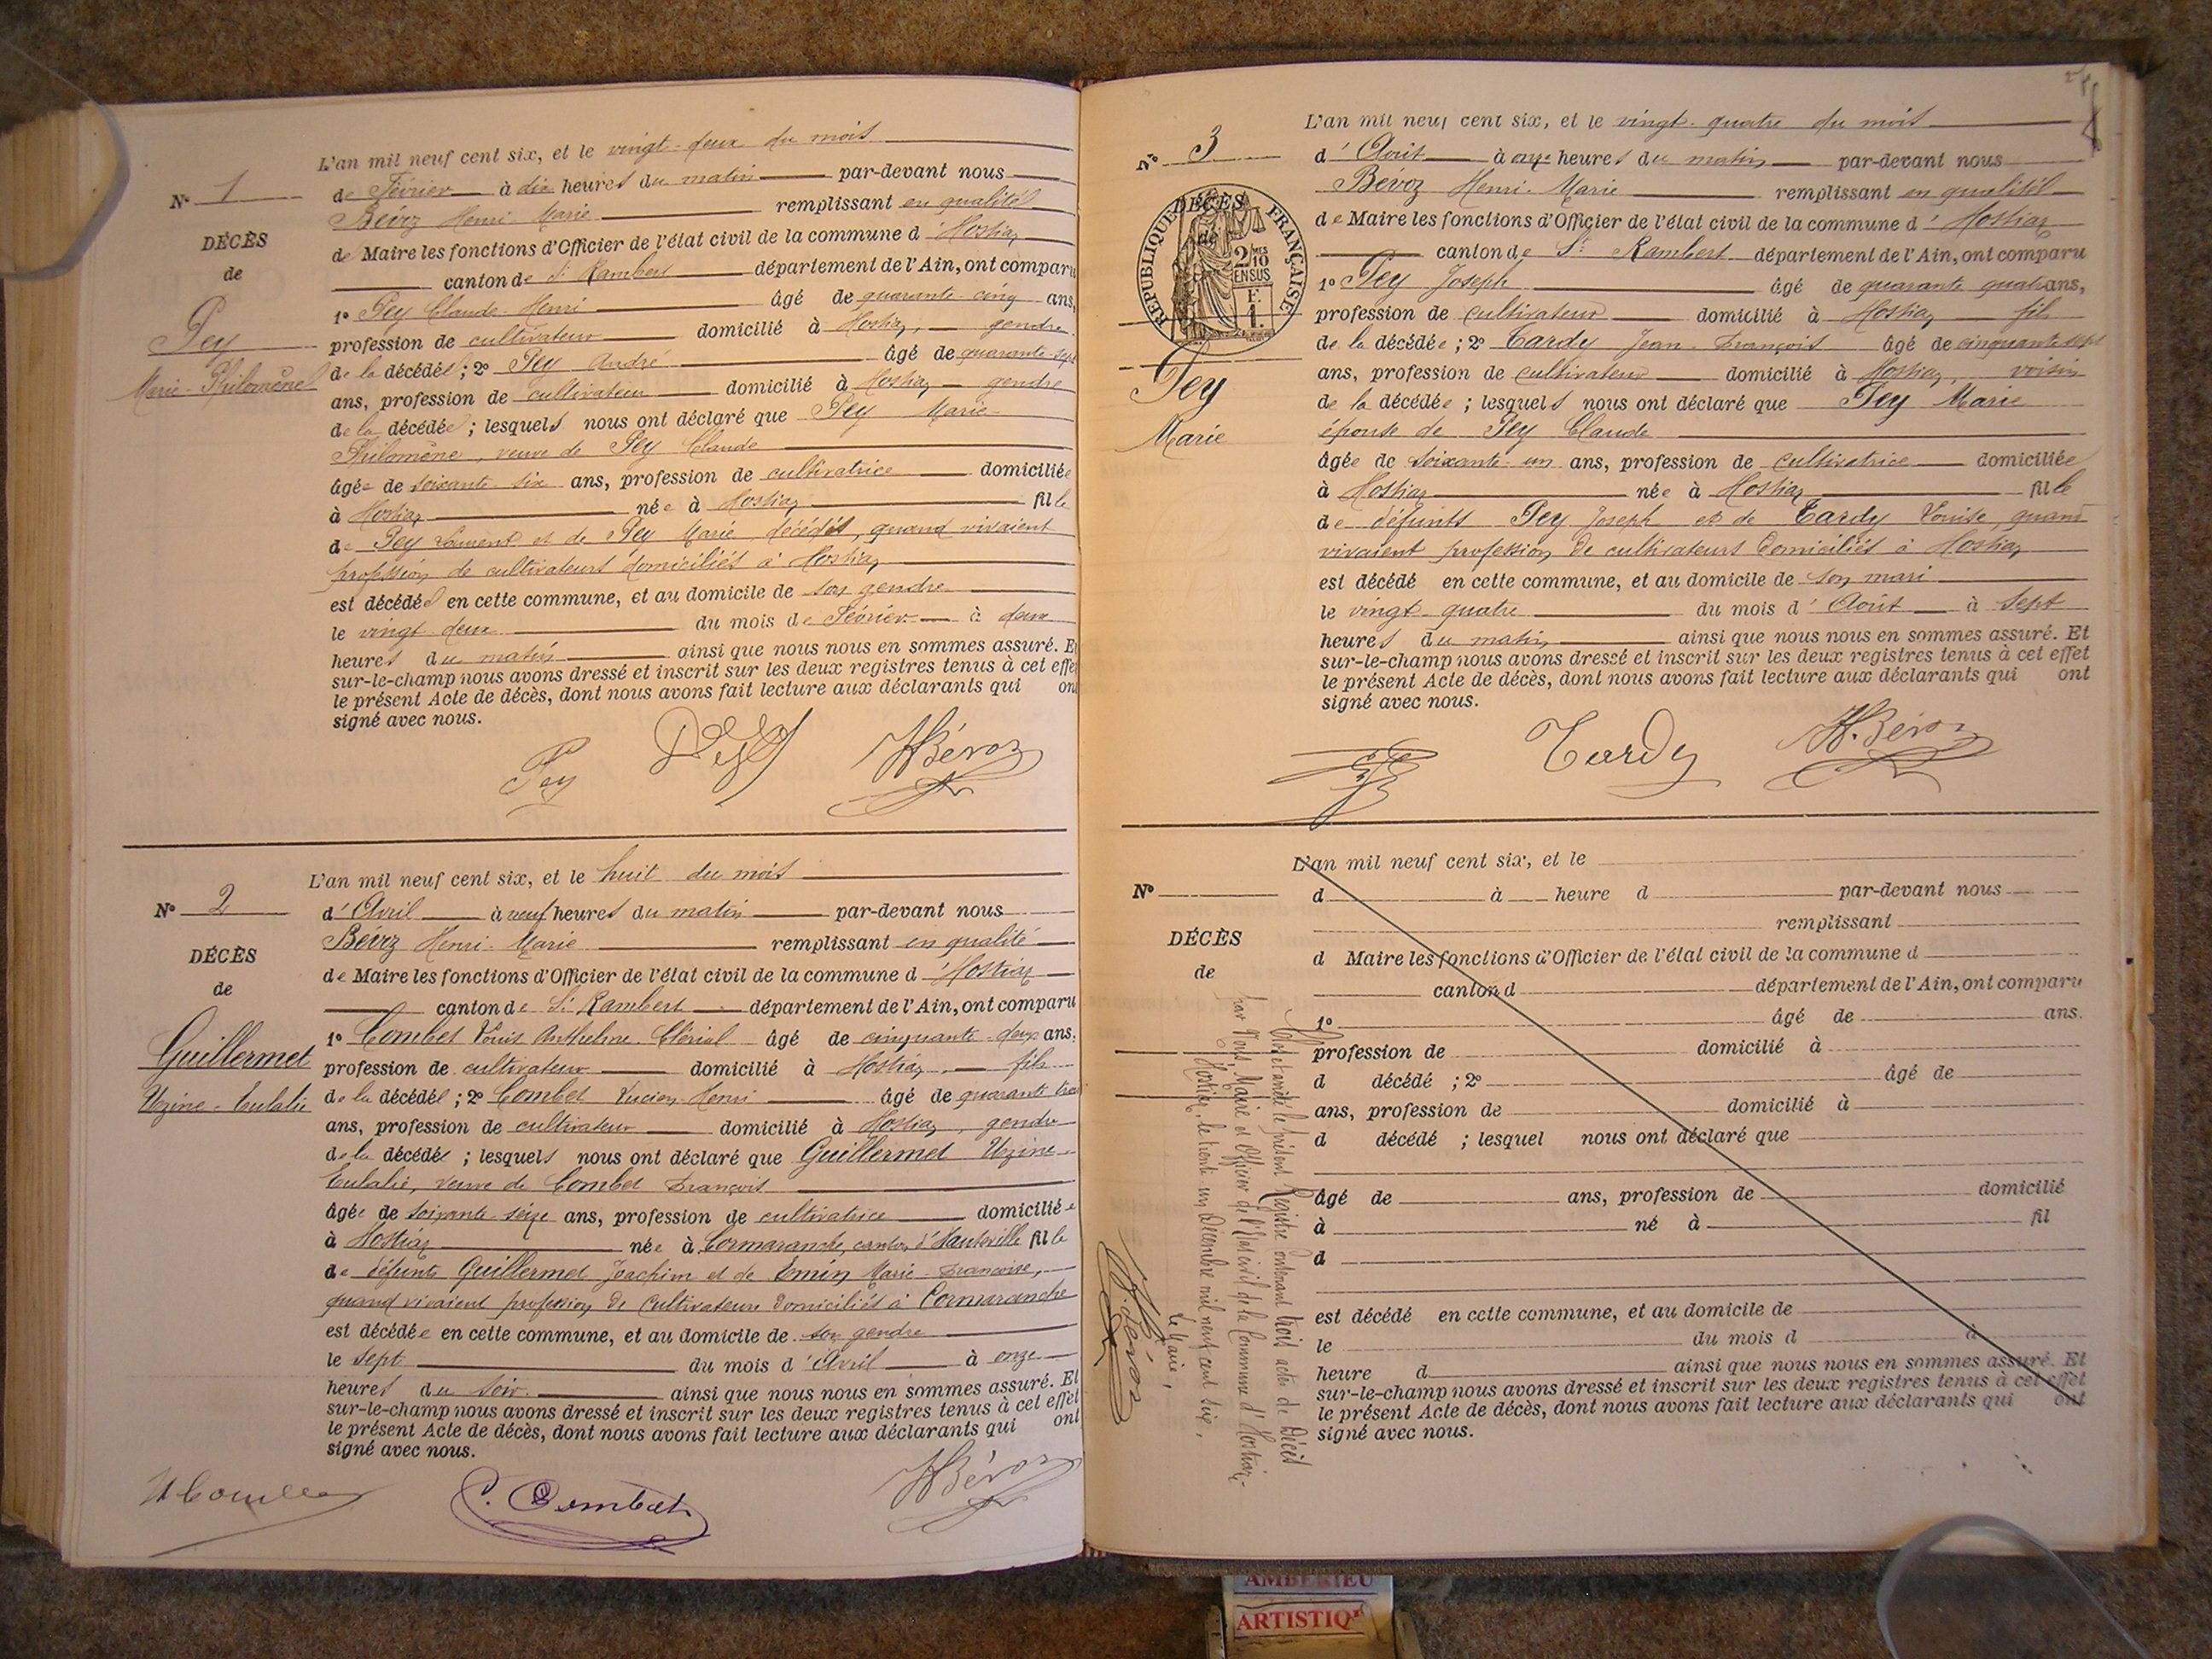 L'an mil neuf cent six, et le vingt-deux du mois
N° 1
de Février à dix heures du matin par-devant nous
Bévoz Henri Marie remplissant en qualité
DÉCÈS
de Maire les fonctions d'Officier de l'état civil de la commune d Hostiaz
de
canton de St Rambert département de l'Ain, ont comparu
1° Pey Claude-Henri âgé de quarante-cinq ans,
Pey
profession de cultivateur domicilié à Hostiaz, gendre
Marie-Philomène
de la décédée ; 2° Pey André âgé de quarante-sept
ans, profession de cultivateur domicilié à Hostiaz gendre
de la décédée ; lesquels nous ont déclaré que Pey Marie-
Philomène, veuve de Pey Claude
âgée de soixante-six ans, profession de cultivatrice domiciliée
à Hostiaz née à Hostiaz fille
de Pey Laurent et de Pey Marie décédés, quand vivaient
profession de cultivateurs domiciliés à Hostiaz
est décédée en cette commune, et au domicile de son gendre
le vingt-deux du mois de Février à deux
heures du matin ainsi que nous nous en sommes assuré. Et
sur-le-champ nous avons dressé et inscrit sur les deux registres tenus à cet effet
le présent Acte de décès, dont nous avons fait lecture aux déclarants qui ont
signé avec nous.
Pey Pey H Bévoz
L'an mil neuf cent six, et le huit du mois
N° 2
d'Avril à neuf heures du matin par-devant nous
Bévoz Henri-Marie remplissant en qualité
DÉCÈS
de Maire les fonctions d'Officier de l'état civil de la commune d'Hostiaz
de
canton de St Rambert département de l'Ain, ont comparu
Guillermet
1° Combet Louis Anthelme âgé de cinquante-deux ans,
profession de cultivateur domicilié à Hostiaz, fils
Uzine-Eulalie
de la décédée ; 2° Combet Lucien Henri âgé de quarante trois
ans, profession de cultivateur domicilié à Hostiaz, gendre
de la décédée ; lesquels nous ont déclaré que Guillermet Uzine-
Eulalie, veuve de Combet François
âgée de soixante-seize ans, profession de cultivatrice domiciliée
à Hostiaz née à Cormaranche, canton d'Hauteville fille
de défunts Guillermet Joachim et de Emin Marie-Françoise,
quand vivaient profession de cultivateurs domiciliés à Cormaranche
est décédée en cette commune, et au domicile de son gendre
le sept du mois d'Avril à onze
heures du soir ainsi que nous nous en sommes assuré. Et
sur-le-champ nous avons dressé et inscrit sur les deux registres tenus à cet effet
le présent Acte de décès, dont nous avons fait lecture aux déclarants qui ont
signé avec nous.
Combet H Bévoz
L'an mil neuf cent six, et le vingt-quatre du mois
N° 3
d'Août à onze heures du matin par-devant nous
Bévoz Henri-Marie remplissant en qualité
DÉCÈS
de
RÉPUBLIQUE FRANÇAISE
2/10 EN SUS
de Maire les fonctions d'Officier de l'état civil de la commune d'Hostiaz
canton de St Rambert département de l'Ain, ont comparu
1° Pey Joseph âgé de quarante quatre ans,
profession de cultivateur domicilié à Hostiaz fils
de la décédée ; 2° Tardy Jean-François âgé de cinquante sept
Pey
ans, profession de cultivateur domicilié à Hostiaz, voisin
de la décédée ; lesquels nous ont déclaré que Pey Marie
Marie
épouse de Pey Claude
âgée de soixante-un ans, profession de cultivatrice domiciliée
à Hostiaz née à Hostiaz fille
de défunts Pey Joseph et de Tardy Louise, quand
vivaient profession de cultivateurs domiciliés à Hostiaz
est décédé en cette commune, et au domicile de son mari
le vingt-quatre du mois d'Août à sept
heures du matin ainsi que nous nous en sommes assuré. Et
sur-le-champ nous avons dressé et inscrit sur les deux registres tenus à cet effet
le présent Acte de décès, dont nous avons fait lecture aux déclarants qui ont
signé avec nous.
Tardy H. Bévoz
L'an mil neuf cent six, et le
N°
d à heure d par-devant nous
remplissant
DÉCÈS
d Maire les fonctions d'Officier de l'état civil de la commune d
de
canton d département de l'Ain, ont comparu
1° âgé de ans.
profession de domicilié à
d décédé ; 2° âgé de
ans, profession de domicilié à
d décédé ; lesquel nous ont déclaré que
âgé de ans, profession de domicilié
à né à fil
d
est décédé en cette commune, et au domicile de
le du mois d à
heure d ainsi que nous nous en sommes assuré. Et
sur-le-champ nous avons dressé et inscrit sur les deux registres tenus à cet effet
le présent Acte de décès, dont nous avons fait lecture aux déclarants qui ont
signé avec nous.
Clos et arrêté le présent Registre contenant trois actes de Décès
par Nous, Maire et Officier de l'Etat civil de la Commune d'Hostiaz-
Hostiaz, le trente un Décembre mil neuf cent six,
Le Maire,
H. Bévoz
AMBERIEU
ARTISTIQ